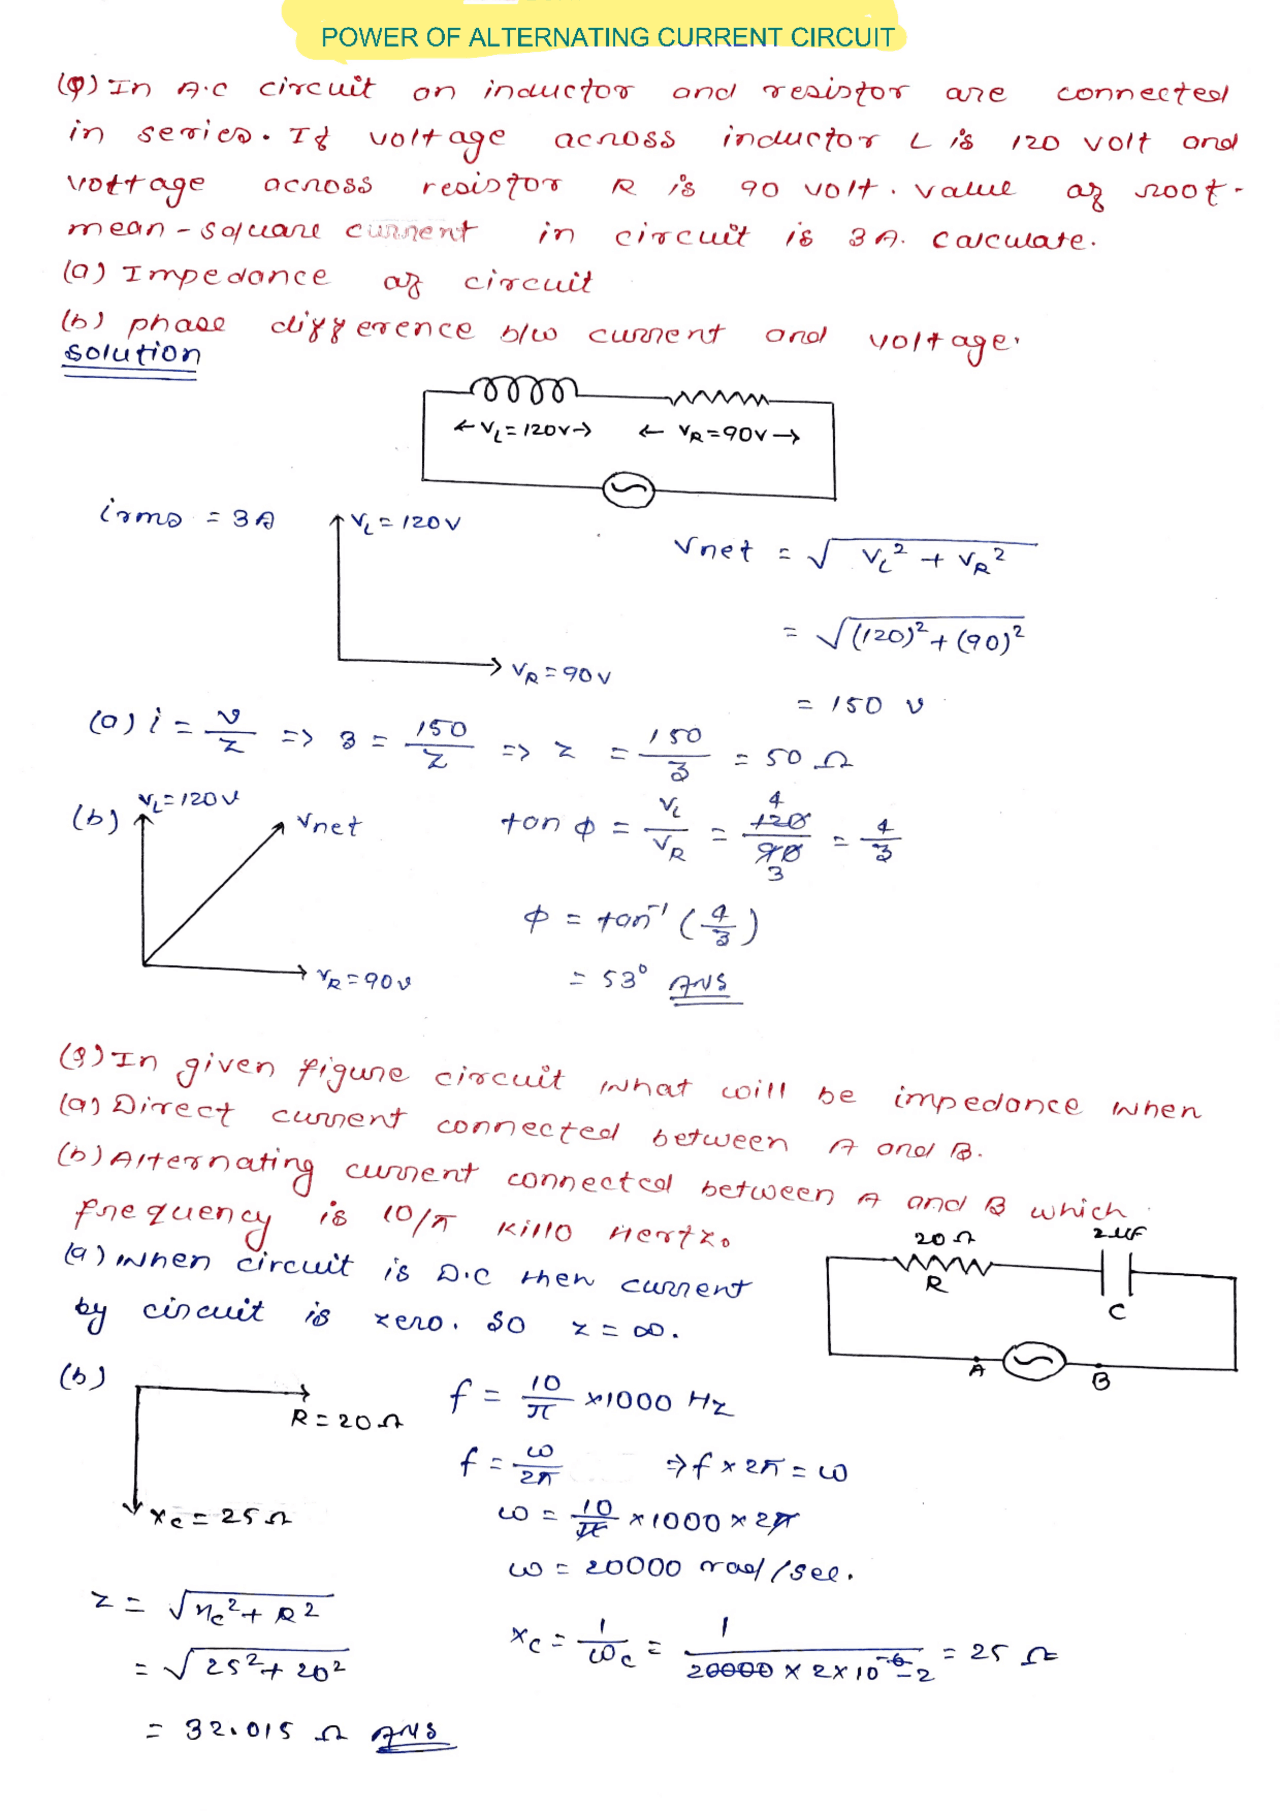 POWER OF ALTERNATING CURRENT CIRCUIT
(Q) In A.C circuit an inductor and resistor are connected
in series. If voltage across inductor L is 120 volt and
vottage across resistor R is 90 volt. value of root-
mean-square current in circuit is 3A. calculate.
(a) Impedance of circuit
(b) phase difference b/w current and voltage.
solution
← VL = 120V → ← VR = 90V →
irms = 3A
VL = 120V
VR = 90V
Vnet = √(VL² + VR²)
= √((120)² + (90)²)
= 150 v
(a) i = v/z => 3 = 150/z => z = 150/3 = 50 Ω
(b) VL = 120V
Vnet
VR = 90V
tan φ = VL/VR = 120/90 = 4/3
4
3
φ = tan⁻¹ (4/3)
= 53° ANS
(Q) In given figure circuit what will be impedance when
(a) Direct current connected between A and B.
(b) Alternating current connected between A and B which
frequency is 10/π killo Hertz.
20 Ω
R
2 μF
C
A
B
(a) when circuit is D.C then current
by circuit is zero. so z = ∞.
(b)
R = 20 Ω
xc = 25 Ω
f = 10/π × 1000 Hz
f = ω/2π ⇒ f × 2π = ω
ω = 10/π × 1000 × 2π
ω = 20000 rad/sec.
z = √(xc² + R²)
= √(25² + 20²)
= 32.015 Ω ANS
xc = 1/ωc = 1/(20000 × 2 × 10⁻⁶ ⁻²) = 25 Ω